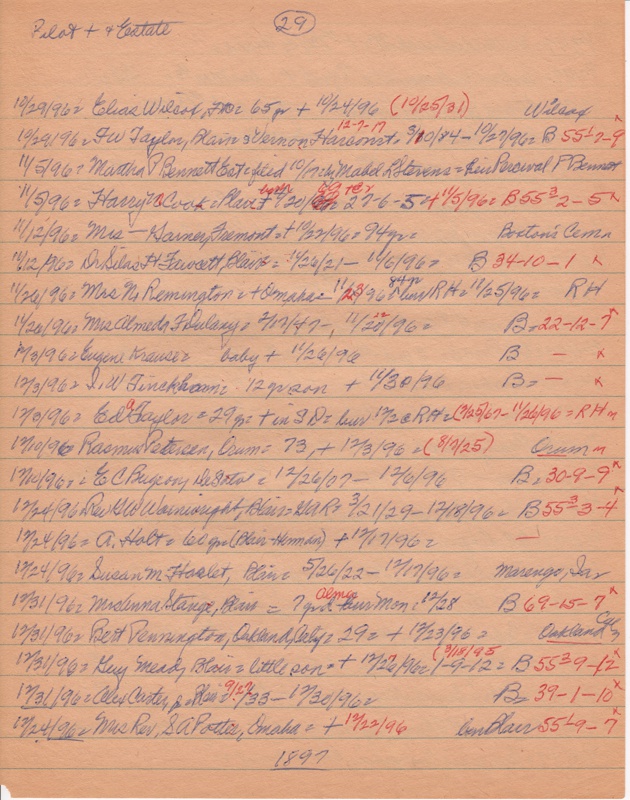 Pilot + & Estate
29
10/29/96 = Elias Wilcox, = 65 yr + 10/24/96 (10/25/31) Wilcox
12-7-17
10/29/96 = F W Taylor, Blair = Vernon 3/10/84 - 10/27/96 = B 55 1-7-9 x
11/5/96 = Martha P Bennett Est = filed 10/17 = by Mabel L Stevens = heir Percival P Bennett
11/5/96 = Harry Cook = Blair + 27-6-5 + 11/5/96 = B 55 3 2-5 x
11/12/96 = Mrs — Garner, Fremont = + 10/22/96 = 94 yr = Boston's Cem
11/12/96 = Dr Silas H Fawcett, Blair = 11/26/21 - 11/6/96 = B 34-10-1 x
84 yr
11/26/96 = Mrs N. Remington = + Omaha = 11/23/96 = bur RH = 11/25/96 = R H
11/26/96 = Mrs Almeda F Dulany = 2/17/47 -, 11/22/96 = B = 22-12-7 x
12/3/96 = Eugene Krause = baby + 11/26/96 B - x
12/3/96 = I. W. = 12 yr son + 11/30/96 B = - x
12/3/96 = Ed Taylor = 29 yr = + in S D = bur 12/2 @ RH = (7/25/67 - 11/26/96 = RH
12/10/96 Rasmus Petersen, Orum = 73, + 12/3/96 = (8/7/25) Orum
12/10/96 = E C DeSoto = 12/26/07 - 12/6/96 B = 30-9-9 x
12/24/96 Rev G W Wainwright, Blair = GAR = 3/21/29 - 12/18/96 = B 55 3 3-4 x
12/24/96 = A. Holt = 60 yr = (Blair-Herman) + 12/17/96 = —
12/24/96 = Susan M Haslet, Blair = 5/26/22 - 12/17/96 = Marengo, Ia
12/31/96 = Mrs Anna Stange, Blair = 7 bur Mon = 12/28 B 69-15-7 x
12/31/96 = Bert Pennington, Oakland, = 29 = + 12/23/96 = Oakland
(3/15/95
12/31/96 = Guy Mead, Blair = little son = + 12/27/96 = 1-9-12 = B 55 3 9-12 x
12/31/96 = Alex Carter, Jr = Blair = 9/27/33 - 12/30/96 = B = 39-1-10 x
12/24/96 = Mrs Rev, S A Potter, Omaha = + 12/22/96 bur Blair 55 1 9-7 x
1897